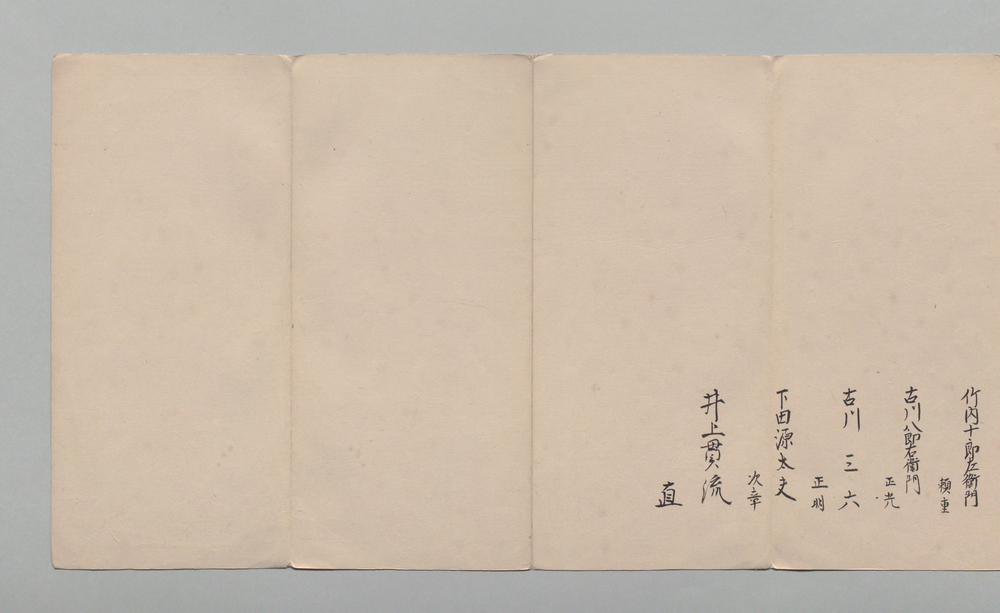 竹内十郎左衛門
頼重
古川八郎右衛門
正光
古川三六
正明
下田源太夫
次章
井上貫流
直